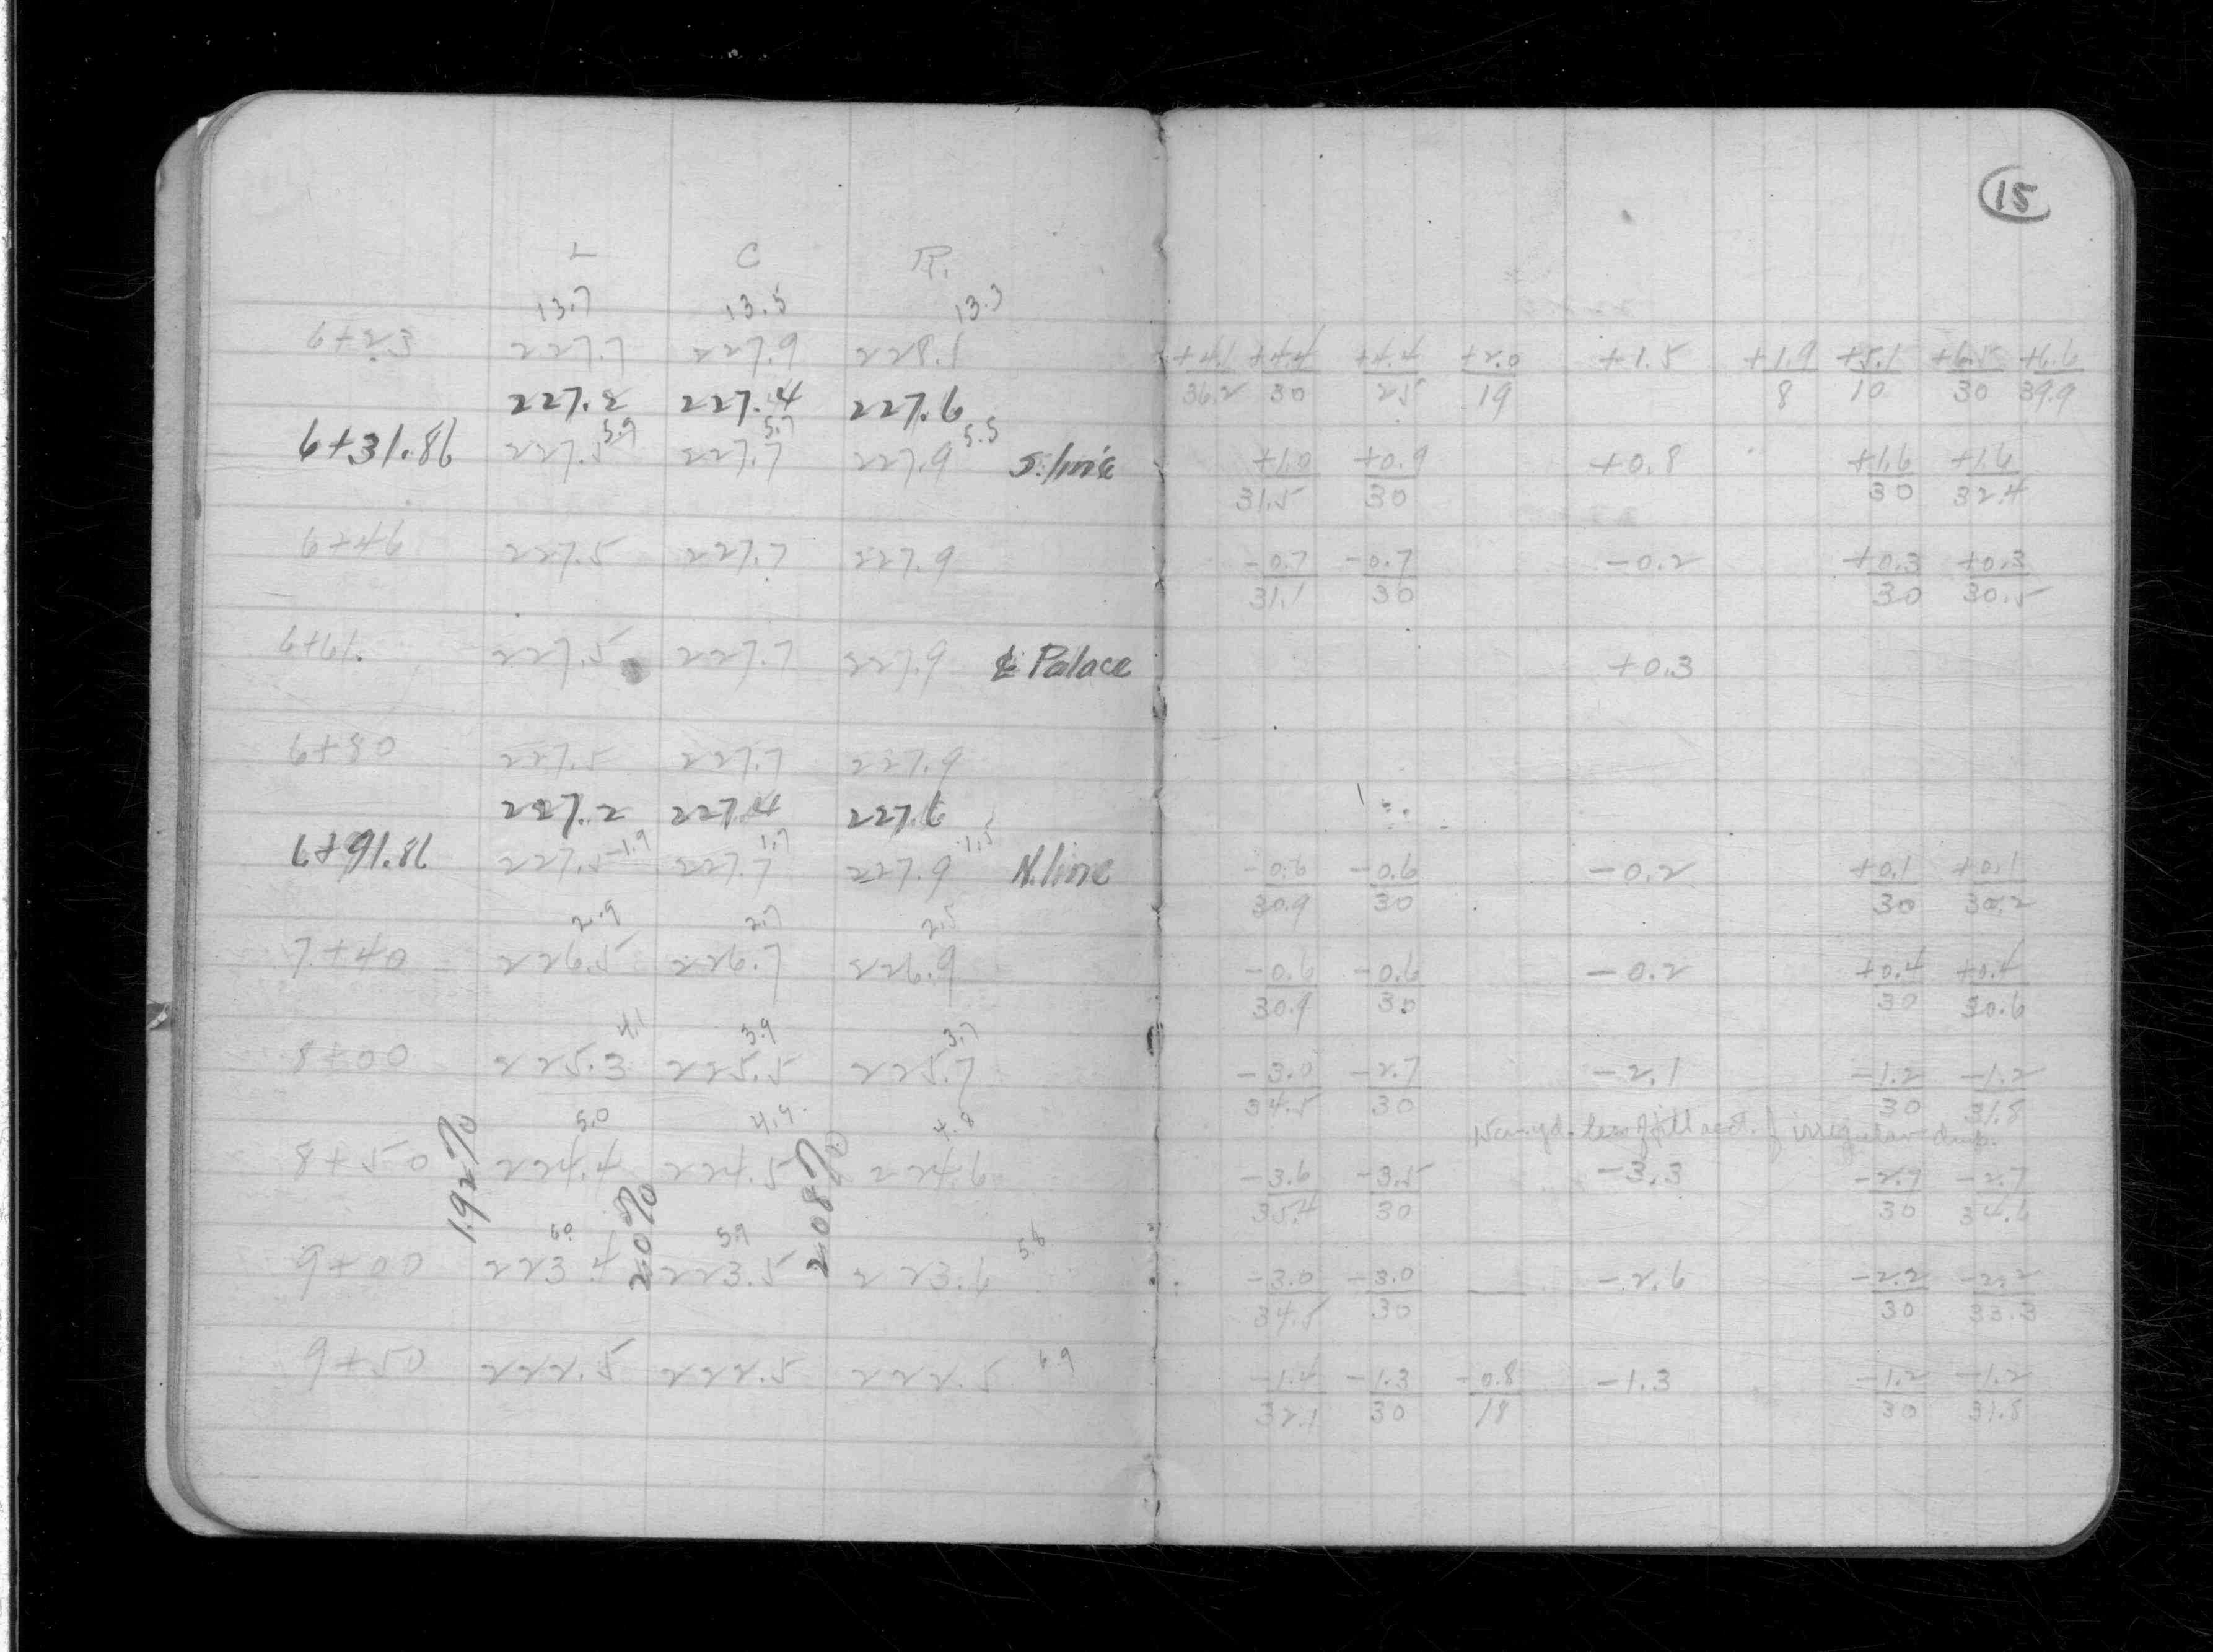 15
L C R.
13.7 13.5 13.3
6+23 227.7 227.9 228.1 +4.1/36.2 +4.4/30 +4.4/25 +2.0/19 +1.5 +1.9/8 +5.1/10 +6.5/30 +6.6/39.9
227.2 227.4 227.6
5.9 5.7 5.5
6+31.86 227.5 227.7 227.9 S. line +1.0/31.5 +0.9/30 +0.8 +1.6/30 +1.6/32.4
6+46 227.5 227.7 227.9 -0.7/31.1 -0.7/30 -0.2 +0.3/30 +0.3/30.5
6+61. 227.5 227.7 227.9 ℄ Palace +0.3
6+80 227.5 227.7 227.9
227.2 227.4 227.6
-1.9 1.7 1.5
6+91.86 227.5 227.7 227.9 N. line -0.6/30.9 -0.6/30 -0.2 +0.1/30 +0.1/30.2
2.9 2.7 2.5
7+40 226.5 226.7 226.9 -0.6/30.9 -0.6/30 -0.2 +0.4/30 +0.4/30.6
4.1 3.9 3.7
8+00 225.3 225.5 225.7 -3.0/34.5 -2.7/30 -2.1 -1.2/30 -1.2/31.8
less fill acct. of irregular
5.0 4.9 4.8
8+50 224.4 224.5 224.6 -3.6/35.4 -3.5/30 -3.3 -2.7/30 -2.7/34.6
1.92% 2.0% 2.08%
6.0 5.9 5.8
9+00 223.4 223.5 223.6 -3.0/34.5 -3.0/30 -2.6 -2.2/30 -2.2/33.3
6.9
9+50 222.5 222.5 222.5 -1.4/32.1 -1.3/30 -0.8/18 -1.3 -1.2/30 -1.2/31.8